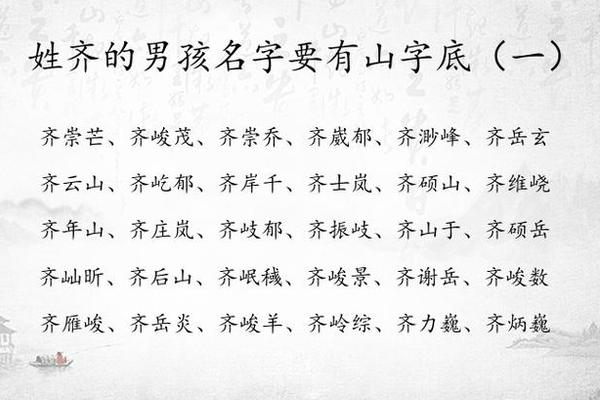 姓齐的男孩名字要有山字底（一）
齐崇芒、齐峻茂、齐崇乔、齐崴郁、齐渺峰、齐岳玄
齐云山、齐屹郁、齐岸千、齐士岚、齐硕山、齐维峣
齐年山、齐庄岚、齐岐郁、齐振岐、齐山于、齐硕岳
齐屾昕、齐后山、齐岷穢、齐峻景、齐谢岳、齐峻数
齐雁峻、齐岳炎、齐峻羊、齐岭综、齐力巍、齐炳巍